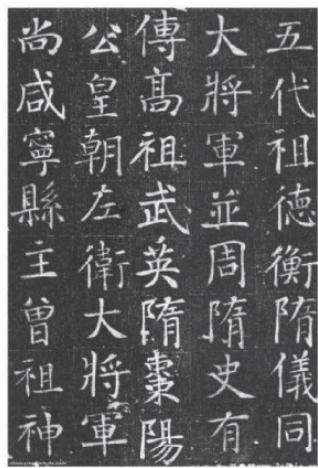 五代祖德衡隋儀同
大將軍並周隋史有
傳高祖武英隋棗陽
公皇朝左衛大將軍
尚咸寧縣主曾祖神